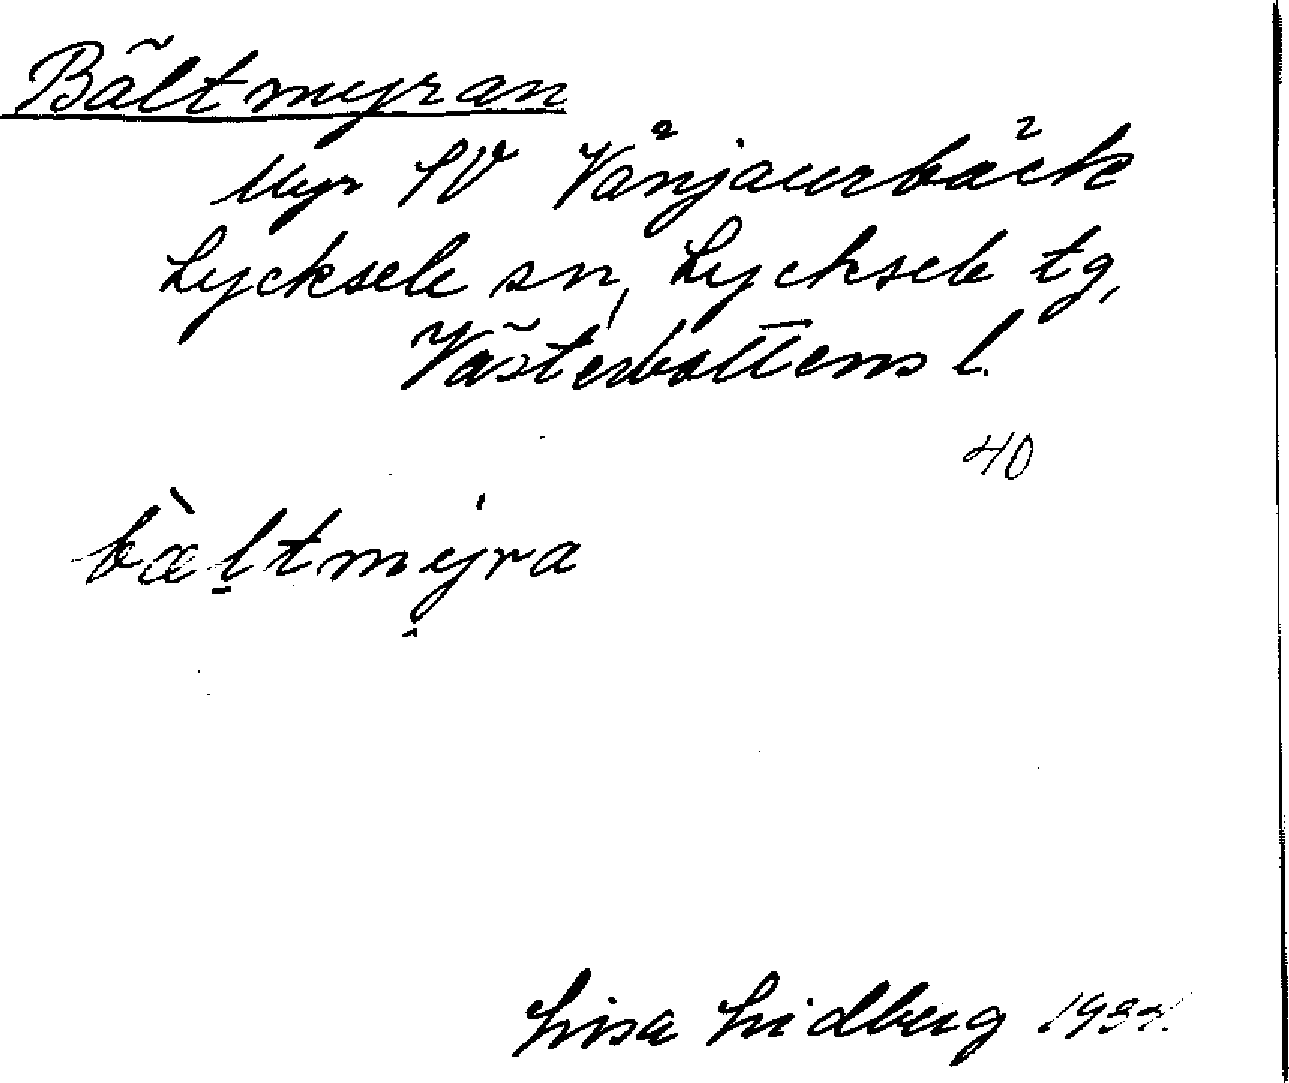 Bältmyran
Myr SV Vånjaurbäck
Lycksele sn, Lycksele tg,
Västerbottens l.
40
bæ̀ltmyra
Lisa Lidberg